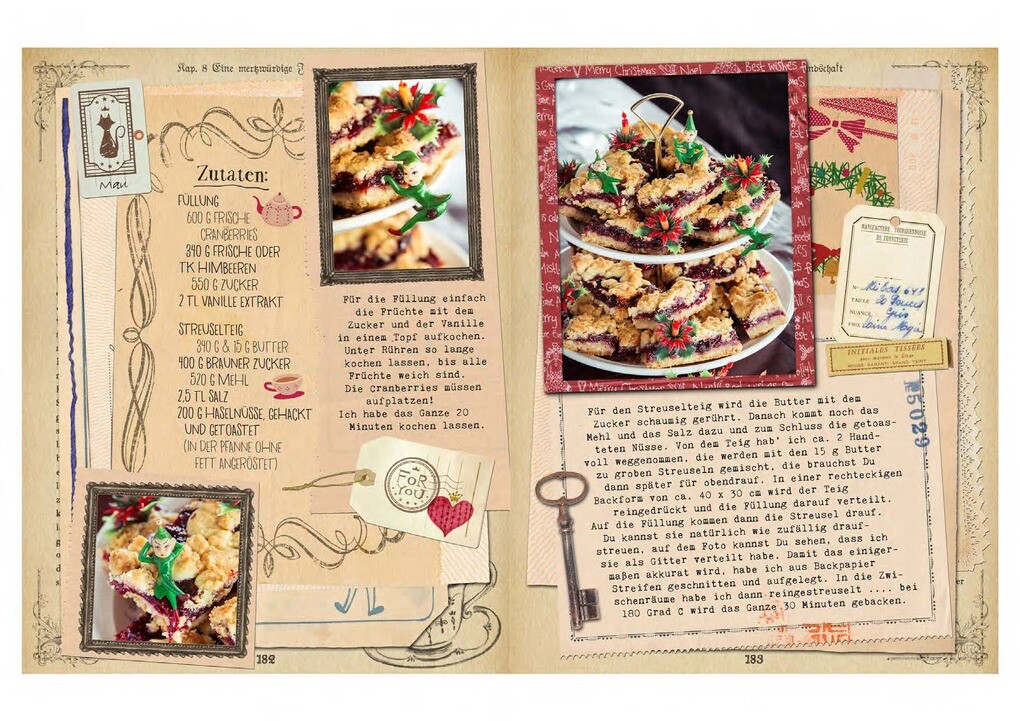 Kap. 8 Eine merkwürdige
Mau
Zutaten:
FÜLLUNG
600 G FRISCHE
CRANBERRIES
340 G FRISCHE ODER
TK HIMBEEREN
550 G ZUCKER
2 TL VANILLE EXTRAKT
STREUSELTEIG
340 G & 15 G BUTTER
400 G BRAUNER ZUCKER
520 G MEHL
2,5 TL SALZ
200 G HASELNÜSSE, GEHACKT
UND GETOASTET
(IN DER PFANNE OHNE
FETT ANGERÖSTET)
Für die Füllung einfach
die Früchte mit dem
Zucker und der Vanille
in einem Topf aufkochen.
Unter Rühren so lange
kochen lassen, bis alle
Früchte weich sind.
Die Cranberries müssen
aufplatzen!
Ich habe das Ganze 20
Minuten kochen lassen.
FOR
YOU
182
ndschaft
Merry Christmas
Noel
Best wishes
MANUFACTURE TOURQUENNOISE
DE BONNETERIE
No
TAILLE
NUANCE
Gris
PRIX
INITIALES TISSÉES
R5029
Für den Streuselteig wird die Butter mit dem
Zucker schaumig gerührt. Danach kommt noch das
Mehl und das Salz dazu und zum Schluss die getoas-
teten Nüsse. Von dem Teig hab' ich ca. 2 Hand-
voll weggenommen, die werden mit den 15 g Butter
zu groben Streuseln gemischt, die brauchst Du
dann später für obendrauf. In einer rechteckigen
Backform von ca. 40 x 30 cm wird der Teig
reingedrückt und die Füllung darauf verteilt.
Auf die Füllung kommen dann die Streusel drauf.
Du kannst sie natürlich wie zufällig drauf-
streuen, auf dem Foto kannst Du sehen, dass ich
sie als Gitter verteilt habe. Damit das einiger-
maßen akkurat wird, habe ich aus Backpapier
Streifen geschnitten und aufgelegt. In die Zwi-
schenräume habe ich dann reingestreuselt .... bei
180 Grad C wird das Ganze 30 Minuten gebacken.
183